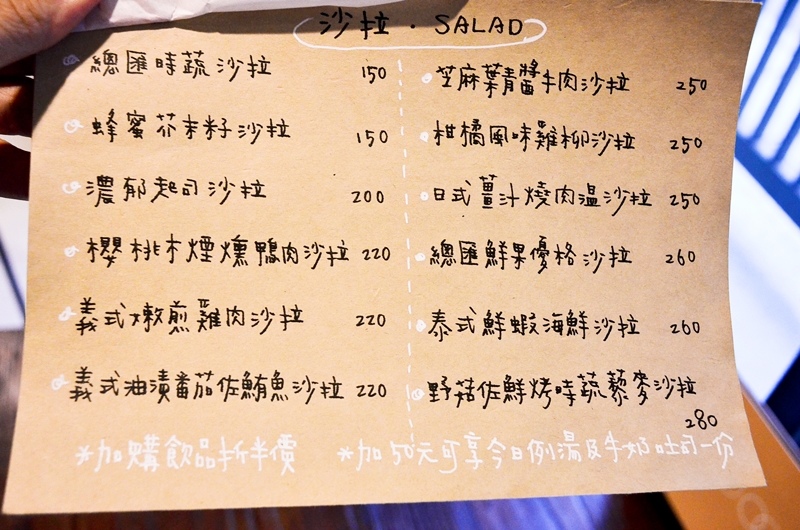 沙拉．SALAD
總匯時蔬沙拉 150
蜂蜜芥末籽沙拉 150
濃郁起司沙拉 200
櫻桃木煙燻鴨肉沙拉 220
義式嫩煎雞肉沙拉 220
義式油漬番茄佐鮪魚沙拉 220
芝麻葉青醬牛肉沙拉 250
柑橘風味雞柳沙拉 250
日式薑汁燒肉溫沙拉 250
總匯鮮果優格沙拉 260
泰式鮮蝦海鮮沙拉 260
野菇佐鮮烤時蔬藜麥沙拉
280
*加購飲品折半價
*加50元可享今日例湯及牛奶吐司一份